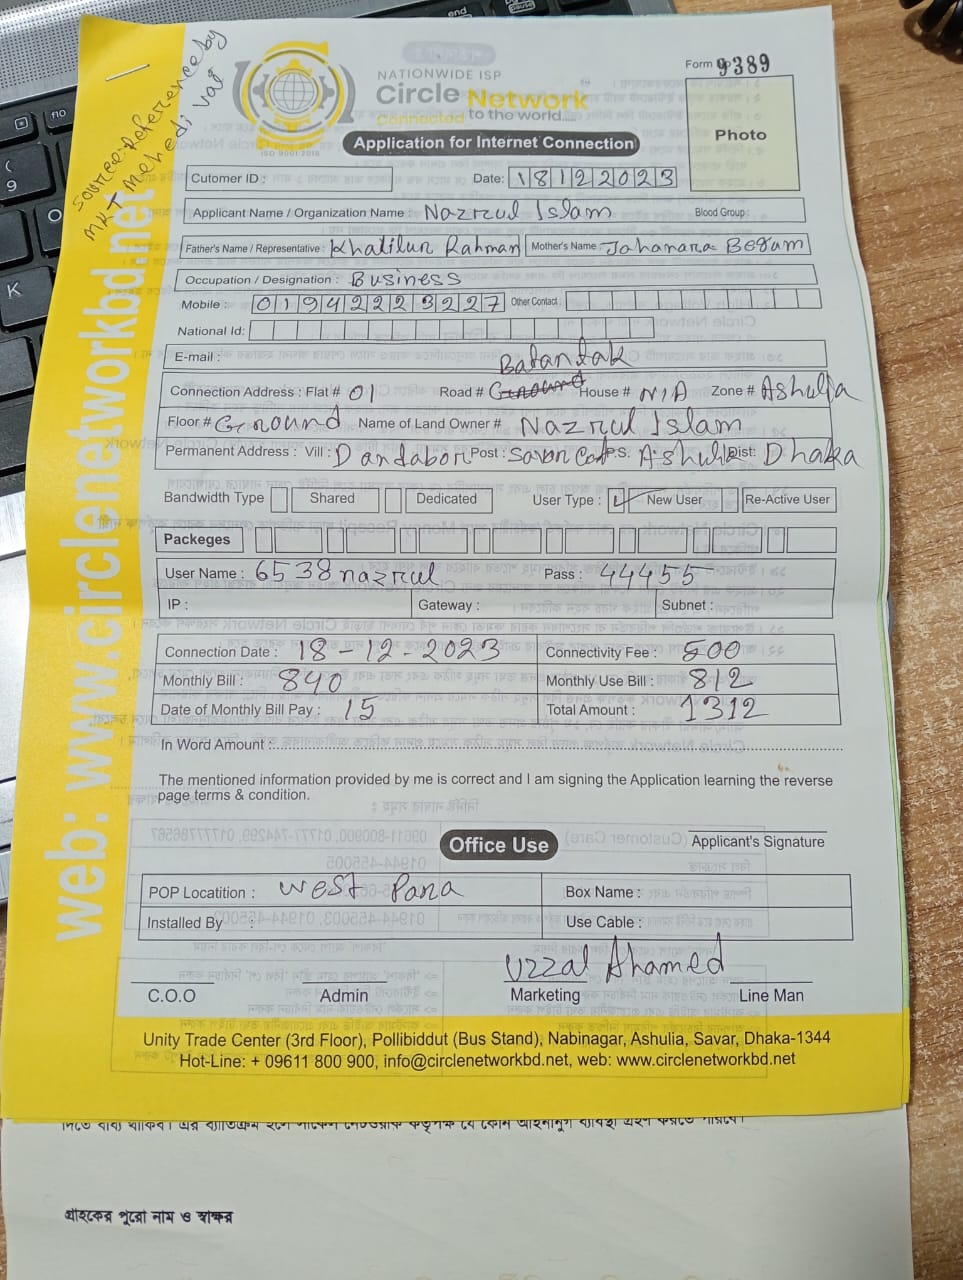 Source: Reference by
MKT Mehedi Vai
NATIONWIDE ISP
Circle Network
Connected to the world....
ISO 9001:2015
Form 9389
Photo
Application for Internet Connection
Cutomer ID : Date: 18122023
Applicant Name / Organization Name : Nazrul Islam Blood Group:
Father's Name / Representative : Khalilur Rahman Mother's Name: Jahanara Begum
Occupation / Designation : Business
Mobile : 01942223227 Other Contact :
National Id:
E-mail :
Batantak
Connection Address : Flat # 01 Road # Ground House # N/A Zone # Ashulia
Floor # Ground Name of Land Owner # Nazrul Islam
Permanent Address : Vill : Dandabor Post : Savar Cat P.S. Ashulia Dist: Dhaka
Bandwidth Type Shared Dedicated User Type : New User Re-Active User
Packeges
User Name : 6538nazrul Pass : 44455
IP : Gateway : Subnet :
Connection Date : 18-12-2023 Connectivity Fee : 500
Monthly Bill : 840 Monthly Use Bill : 812
Date of Monthly Bill Pay : 15 Total Amount : 1312
In Word Amount :
The mentioned information provided by me is correct and I am signing the Application learning the reverse
page terms & condition.
Applicant's Signature
Office Use
POP Locatition : West Para Box Name :
Installed By : Use Cable :
Uzzal Ahamed
C.O.O Admin Marketing Line Man
Unity Trade Center (3rd Floor), Pollibiddut (Bus Stand), Nabinagar, Ashulia, Savar, Dhaka-1344
Hot-Line: + 09611 800 900, info@circlenetworkbd.net, web: www.circlenetworkbd.net
web: www.circlenetworkbd.net
গ্রাহকের পুরো নাম ও স্বাক্ষর